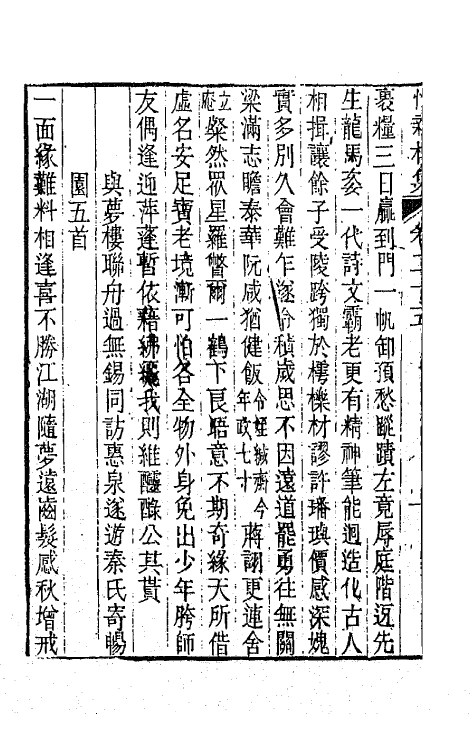 裹糧三日贏到門一帆卸預愁蹤蹟左竟辱庭階迓先
生龍馬姿一代詩文霸老更有精神筆能迴造化古人
相揖讓餘子受陵跨獨於樗櫟材謬許璠璵價感深媿
實多別久會難乍遂令積歲思不因遠道罷勇往無關
梁滿志瞻泰華阮咸猶健飯令姪緘齋今年政七十蔣詡更連舍
立庵粲然眾星羅瞥爾一鶴下良晤意不期奇緣天所借
虛名安足寶老境漸可怕各全物外身免出少年胯師
友偶逢迎萍蓬暫依藉紼纚我則維醽醁公其貰
與夢樓聯舟過無錫同訪惠泉遂遊秦氏寄暢
園五首
一面緣難料相逢喜不勝江湖隨夢遠齒髮感秋增戒